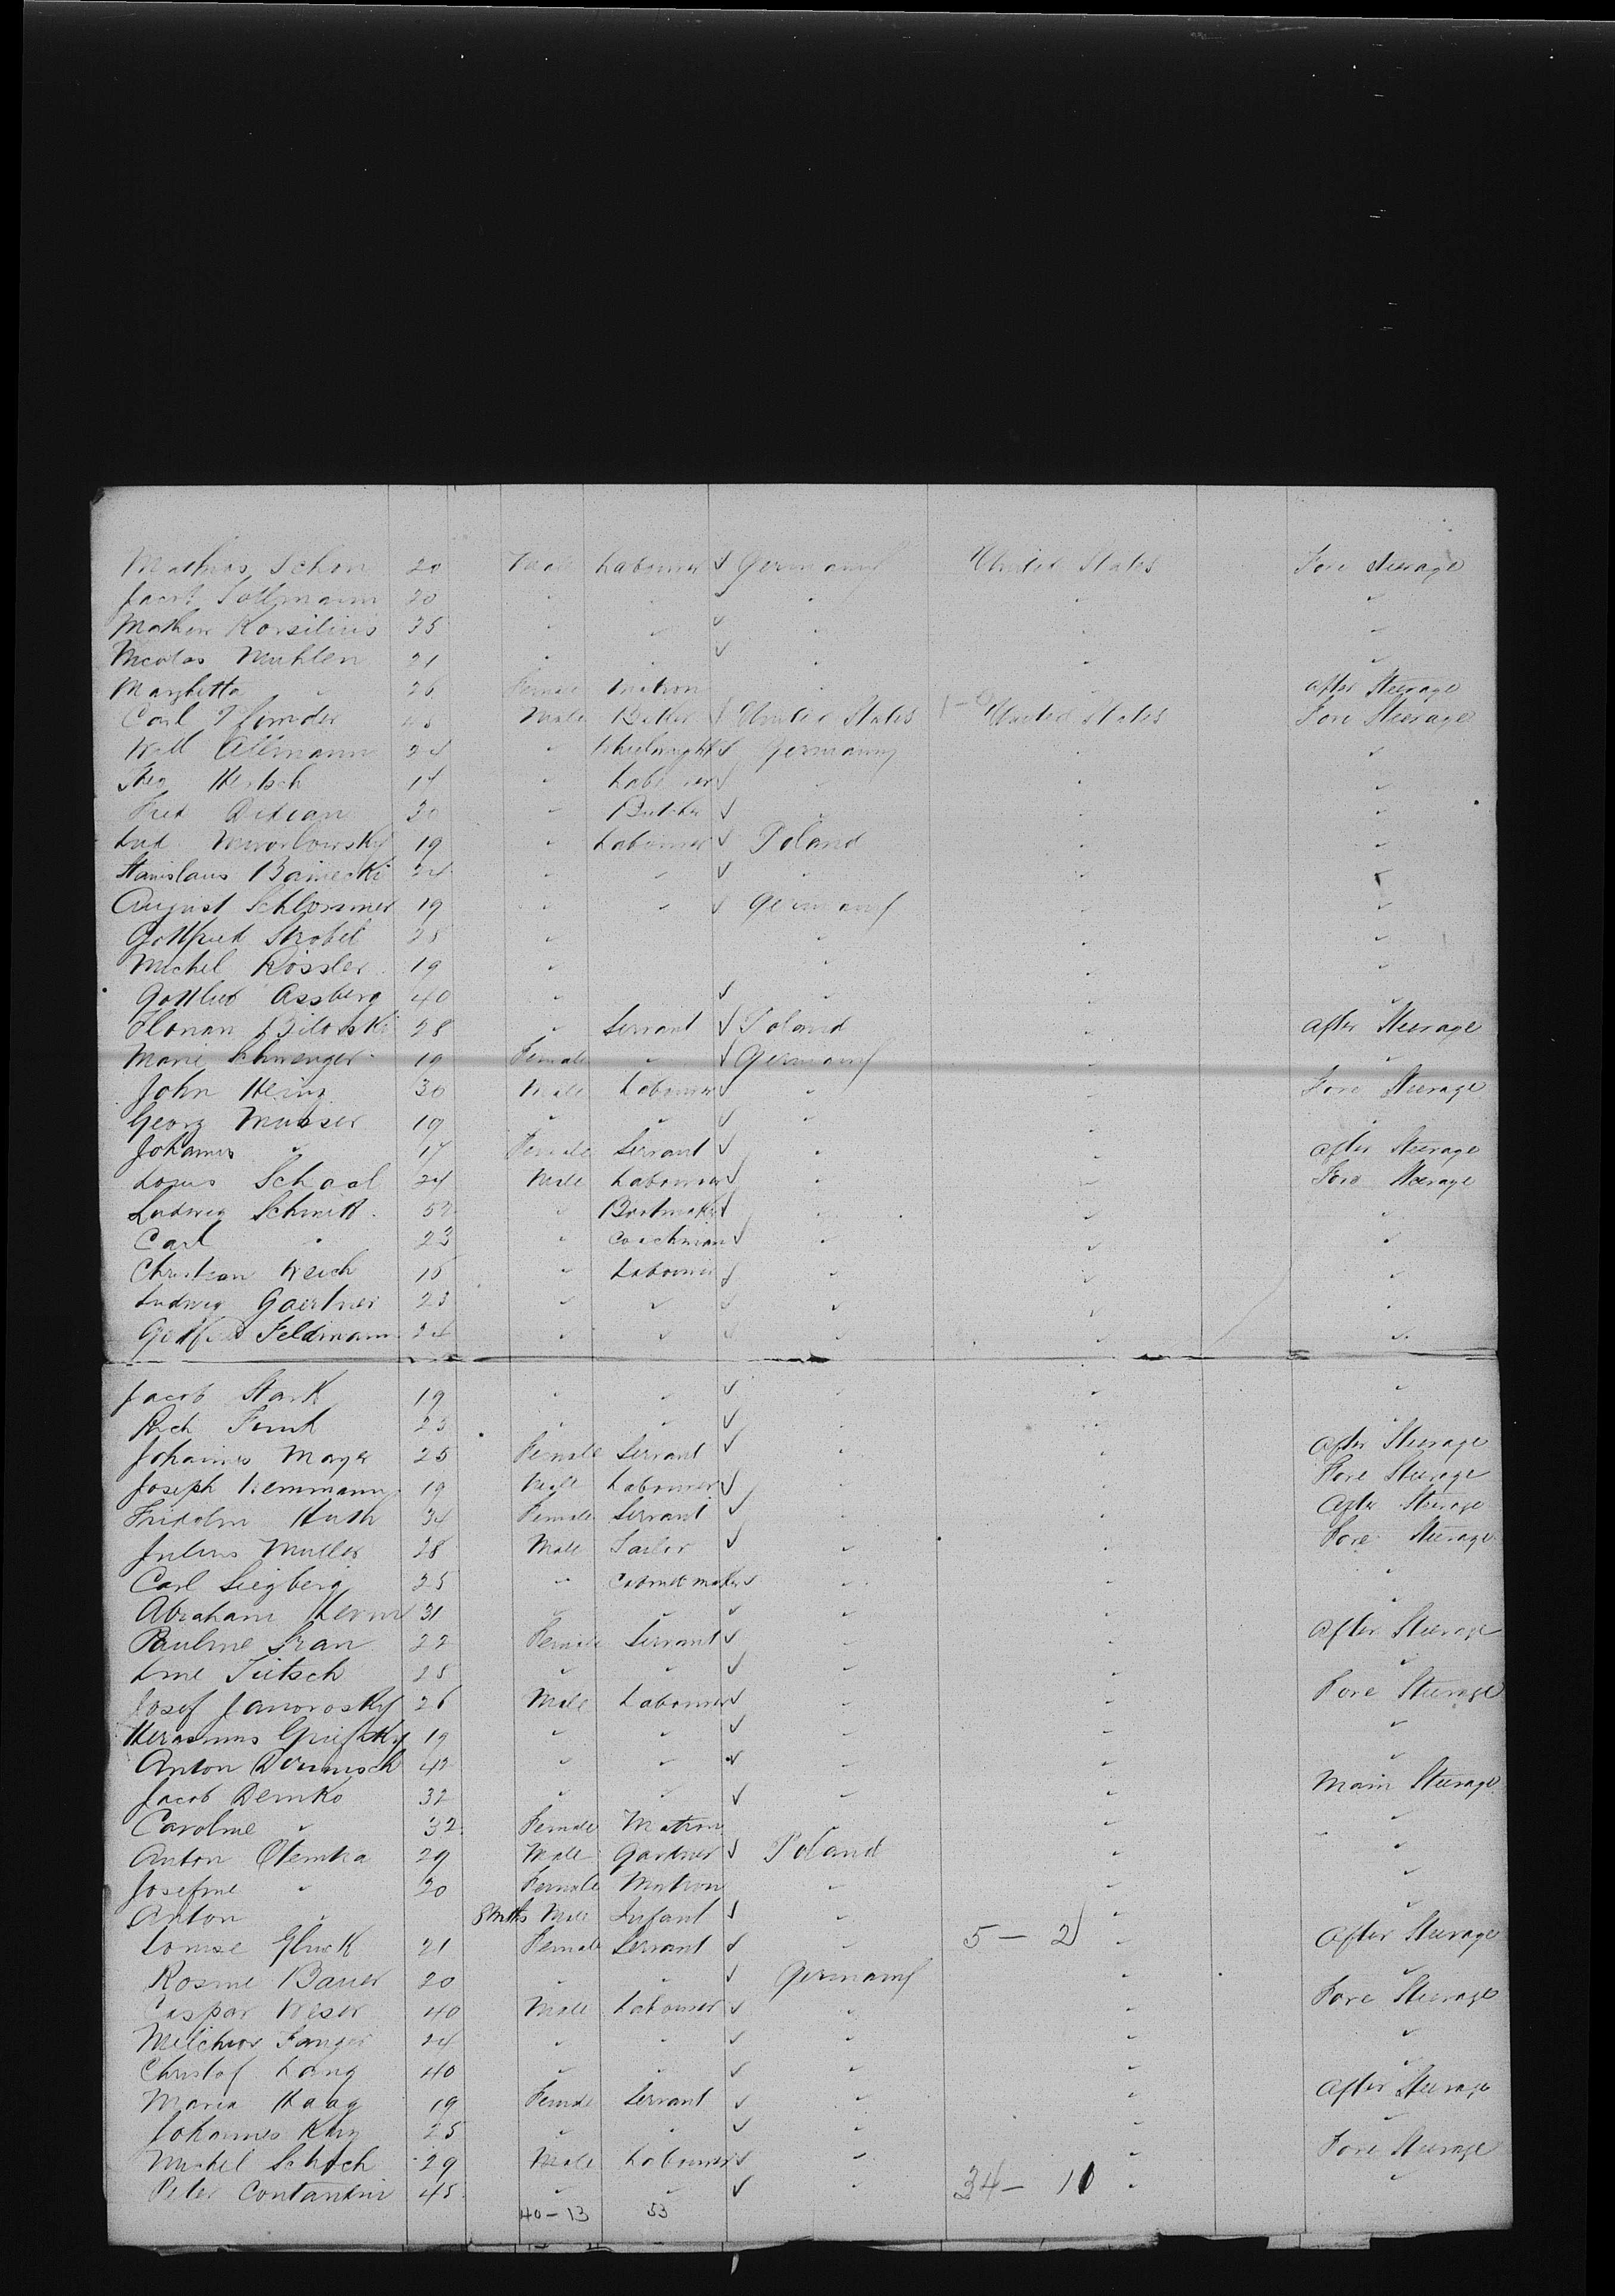 Mathias Schon 20 Male Labourer ✓ Germany United States Fore Steerage
Jacob Sollmann 20 " " ✓ " " "
Mathew Korsilius 35 " " ✓ " " "
Nicolas Muhlen 21 " " ✓ " " "
Margketta " 26 Female Matron " " After Steerage
Carl 45 Male Baker ✓ United States 1-0 United States Fore Steerage
Will Allmann 24 " Wheelwright ✓ Germany " "
Hertsch 17 " Labourer ✓ " " "
Fred Didian 30 " Butcher ✓ " " "
Lud 19 " Labourer ✓ Poland " "
Stanislaus Bainecki 24 " " ✓ " " "
August Schlommer 19 " " ✓ Germany " "
Gottfried Strobel 25 " " " "
Michel Rossler 19 " " " "
Gottlieb Assberg 40 " ✓ " " "
Florian Bilorski 28 " Servant ✓ Poland " After Steerage
Marie Schwenger 19 Female " ✓ Germany " "
John Heins 30 Male Labourer ✓ " " Fore Steerage
Georg Musser 19 " " ✓ " " "
Johannes " 17 Female Servant ✓ " " After Steerage
Louis Schaal 24 Male Labourer ✓ " " Fore Steerage
Ludwig Schmitt 52 " Bootmaker ✓ " " "
Carl " 23 " Coachman ✓ " " "
Christian Weich 16 " Labourer ✓ " " "
Ludwig Gaertner 23 " " ✓ " " "
Gottfried Feldmann 24 " " ✓ " " "
Jacob Stark 19 " " ✓ " " "
Rich Funk 23 " " ✓ " " "
Johannes Mayer 25 Female Servant ✓ " " After Steerage
Joseph Kemmann 19 Male Labourer ✓ " " Fore Steerage
Fridolin Huth 34 Female Servant ✓ " " After Steerage
Julius Muller 28 Male Tailor ✓ " " Fore Steerage
Carl Siegberg 25 " Cabinet maker ✓ " " "
Abraham 31 " " ✓ " " "
Pauline Sran 22 Female Servant ✓ " " After Steerage
Tietsch 25 " " ✓ " " "
Josef Janorosky 26 Male Labourer ✓ " " Fore Steerage
19 " " ✓ " "
Anton 42 " " ✓ " " "
Jacob Demko 32 " " ✓ " " Main Steerage
Caroline " 32 Female Matron " "
Anton Olemka 29 Male Gardner ✓ Poland " "
Josefine " 20 Female Matron " " "
Anton " 8 Mths Male Infant ✓ " " "
Louise Gluck 21 Female Servant ✓ " 5 - 2 " After Steerage
Rosine Bauer 20 " " ✓ Germany " "
Caspar Weser 40 Male Labourer ✓ " " Fore Steerage
Melchior Fanger 24 " " ✓ " " "
Christof Lang 40 " " ✓ " " "
Maria Haag 19 Female Servant ✓ " " After Steerage
Johannes King 25 " " ✓ " "
Michel Schoch 29 Male Labourer ✓ " " Fore Steerage
Peter Contantin 45 " " ✓ " 34 - 11 " "
40 - 13 53